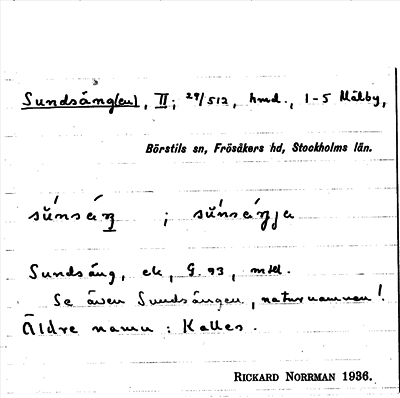 Sundsäng(en), II; 29/512, hmd., 1-5 Mälby,
Börstils sn, Frösåkers hd, Stockholms län.
sŭ́nsǽŋ ; sŭ́nsǽŋja
Sundsäng, ek, G. 93, mtel.
Se även Sundsängen, naturnamnen!
Äldre namn: Kalles.
RICKARD NORRMAN 1936.